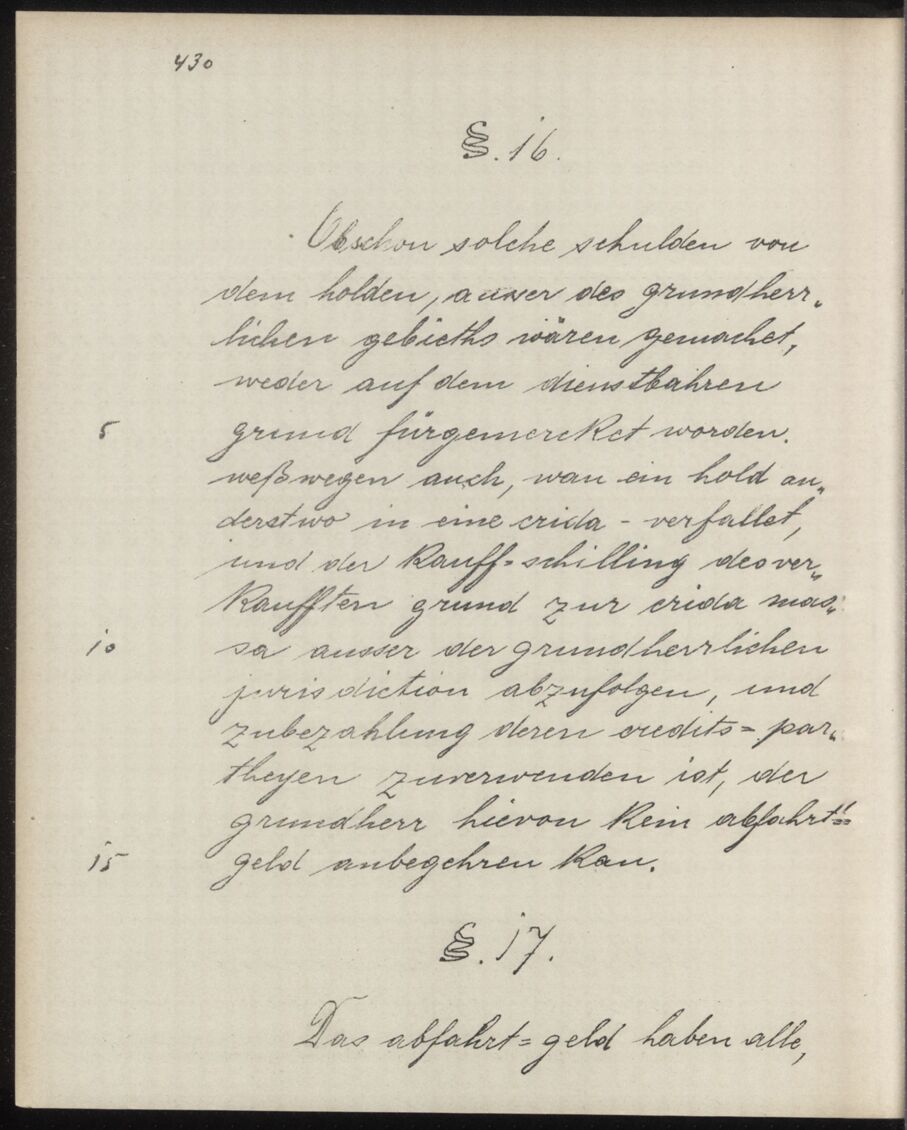 430
§. 16.
Obschon solche schulden von
dem holden, ausser des grundherr„
lichen gebieths wären gemachet,
weder auf dem dienstbahren
5 grund fürgemercket worden.
weßwegen auch, wan ein hold an„
derstwo in eine crida - verfallet,
und der kauff=schilling des ver„
kaufften grund zur crida mas„
10 sa ausser der grundherrlichen
jurisdiction abzufolgen, und
zubezahlung deren credits=par„
theyen zuverwenden ist, der
grundherr hievon kein abfahrt=
15 geld anbegehren kan.
§. 17.
Das abfahrt=geld haben alle,